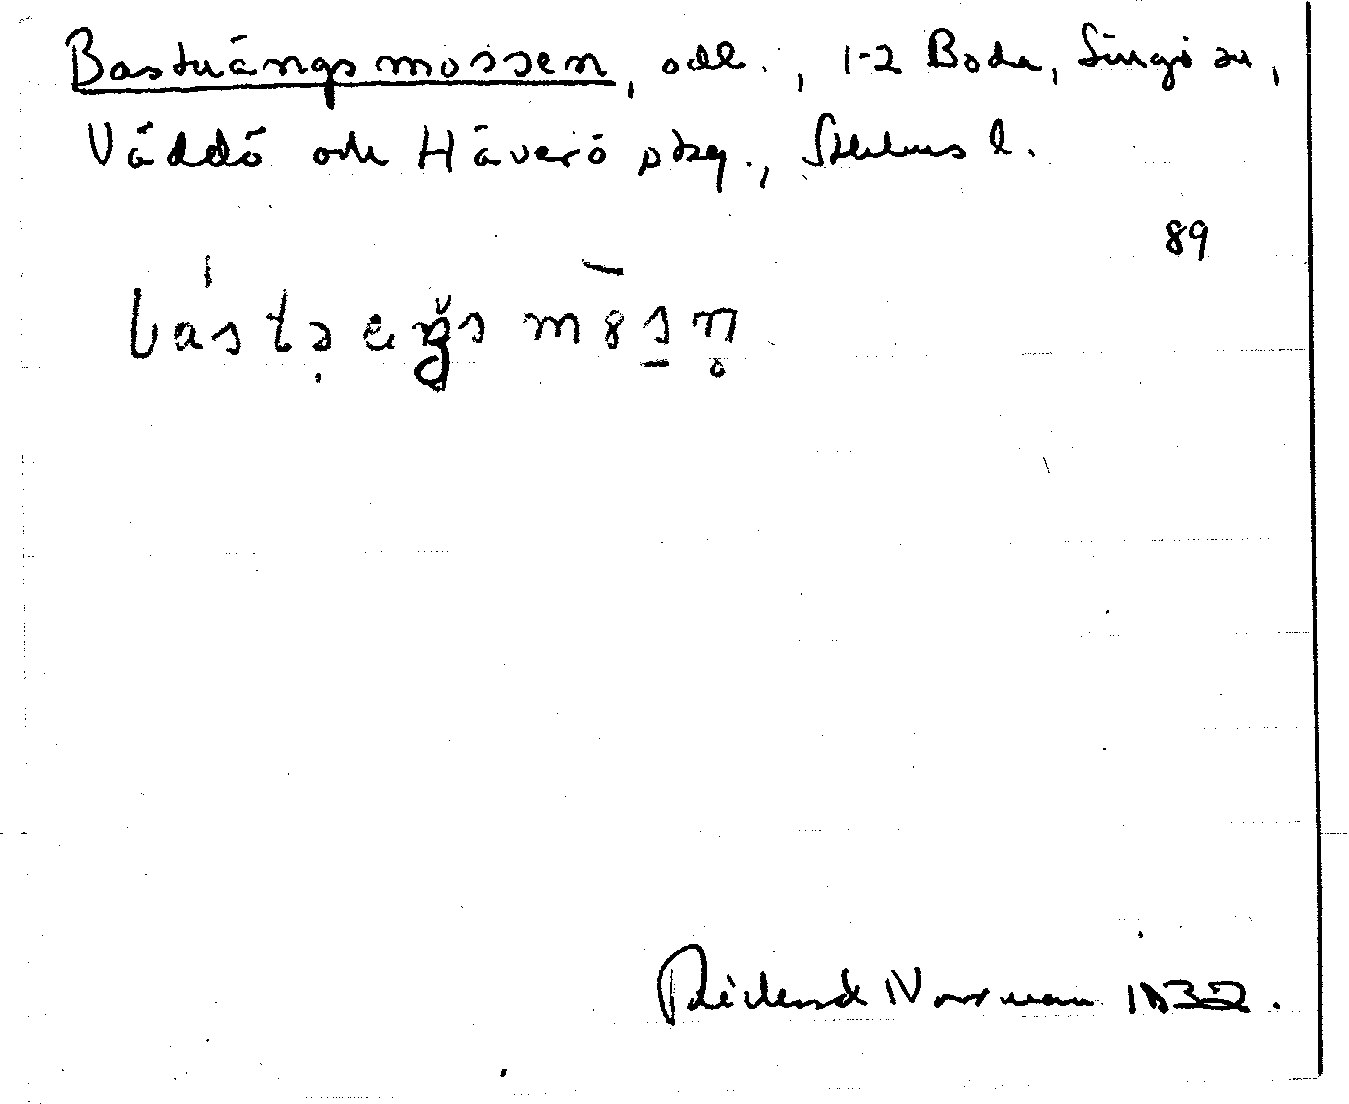 Bastuängsmossen, odl., 1-2 Boda, Singö sn,
Väddö och Häverö skg., Sthlms l.
89
Rickard Norrman 1932.